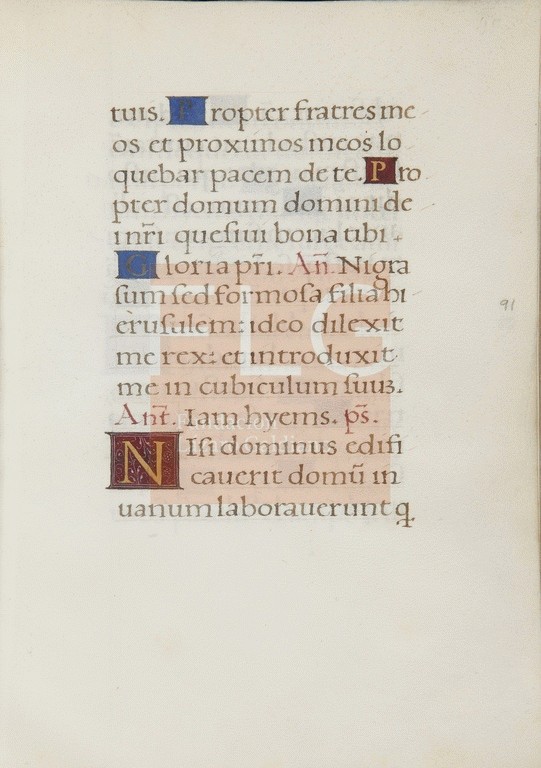 tuis. Propter fratres me
os et proximos meos lo
quebar pacem de te. Pro
pter domum domini de
i nr̃i quesiui bona tibi.
Gloria pr̃i. Añ. Nigra
ſum ſed formoſa filia hi
eruſalem: ideo dilexit
me rex: et introduxit
me in cubiculum ſuuʒ.
Añt. Iam hyems. ps̃.
Niſi dominus edifi
cauerit domũ in
uanum laborauerunt q̃
91
FLG
Fundación